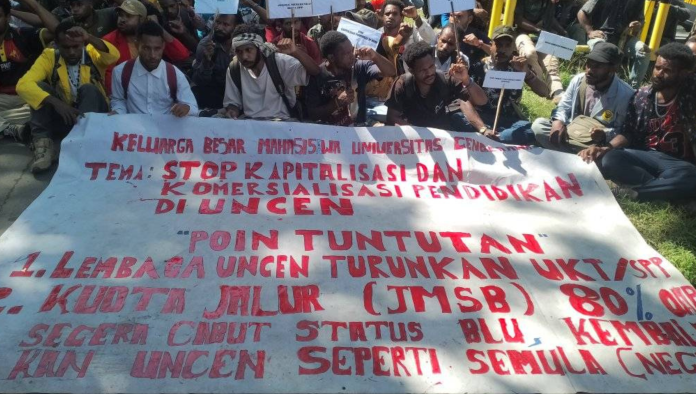 KELUARGA BESAR MAHASISWA UNIVERSITAS
TEMA: STOP KAPITALISASI DAN
KOMERSIALISASI PENDIDIKAN
DI UNCEN
"POIN TUNTUTAN"
1. LEMBAGA UNCEN TURUNKAN UKT/SPP
2. KUOTA JALUR (JMSB) 80%
SEGERA CABUT STATUS BLU KEMBALI
KAN UNCEN SEPERTI SEMULA (NEG